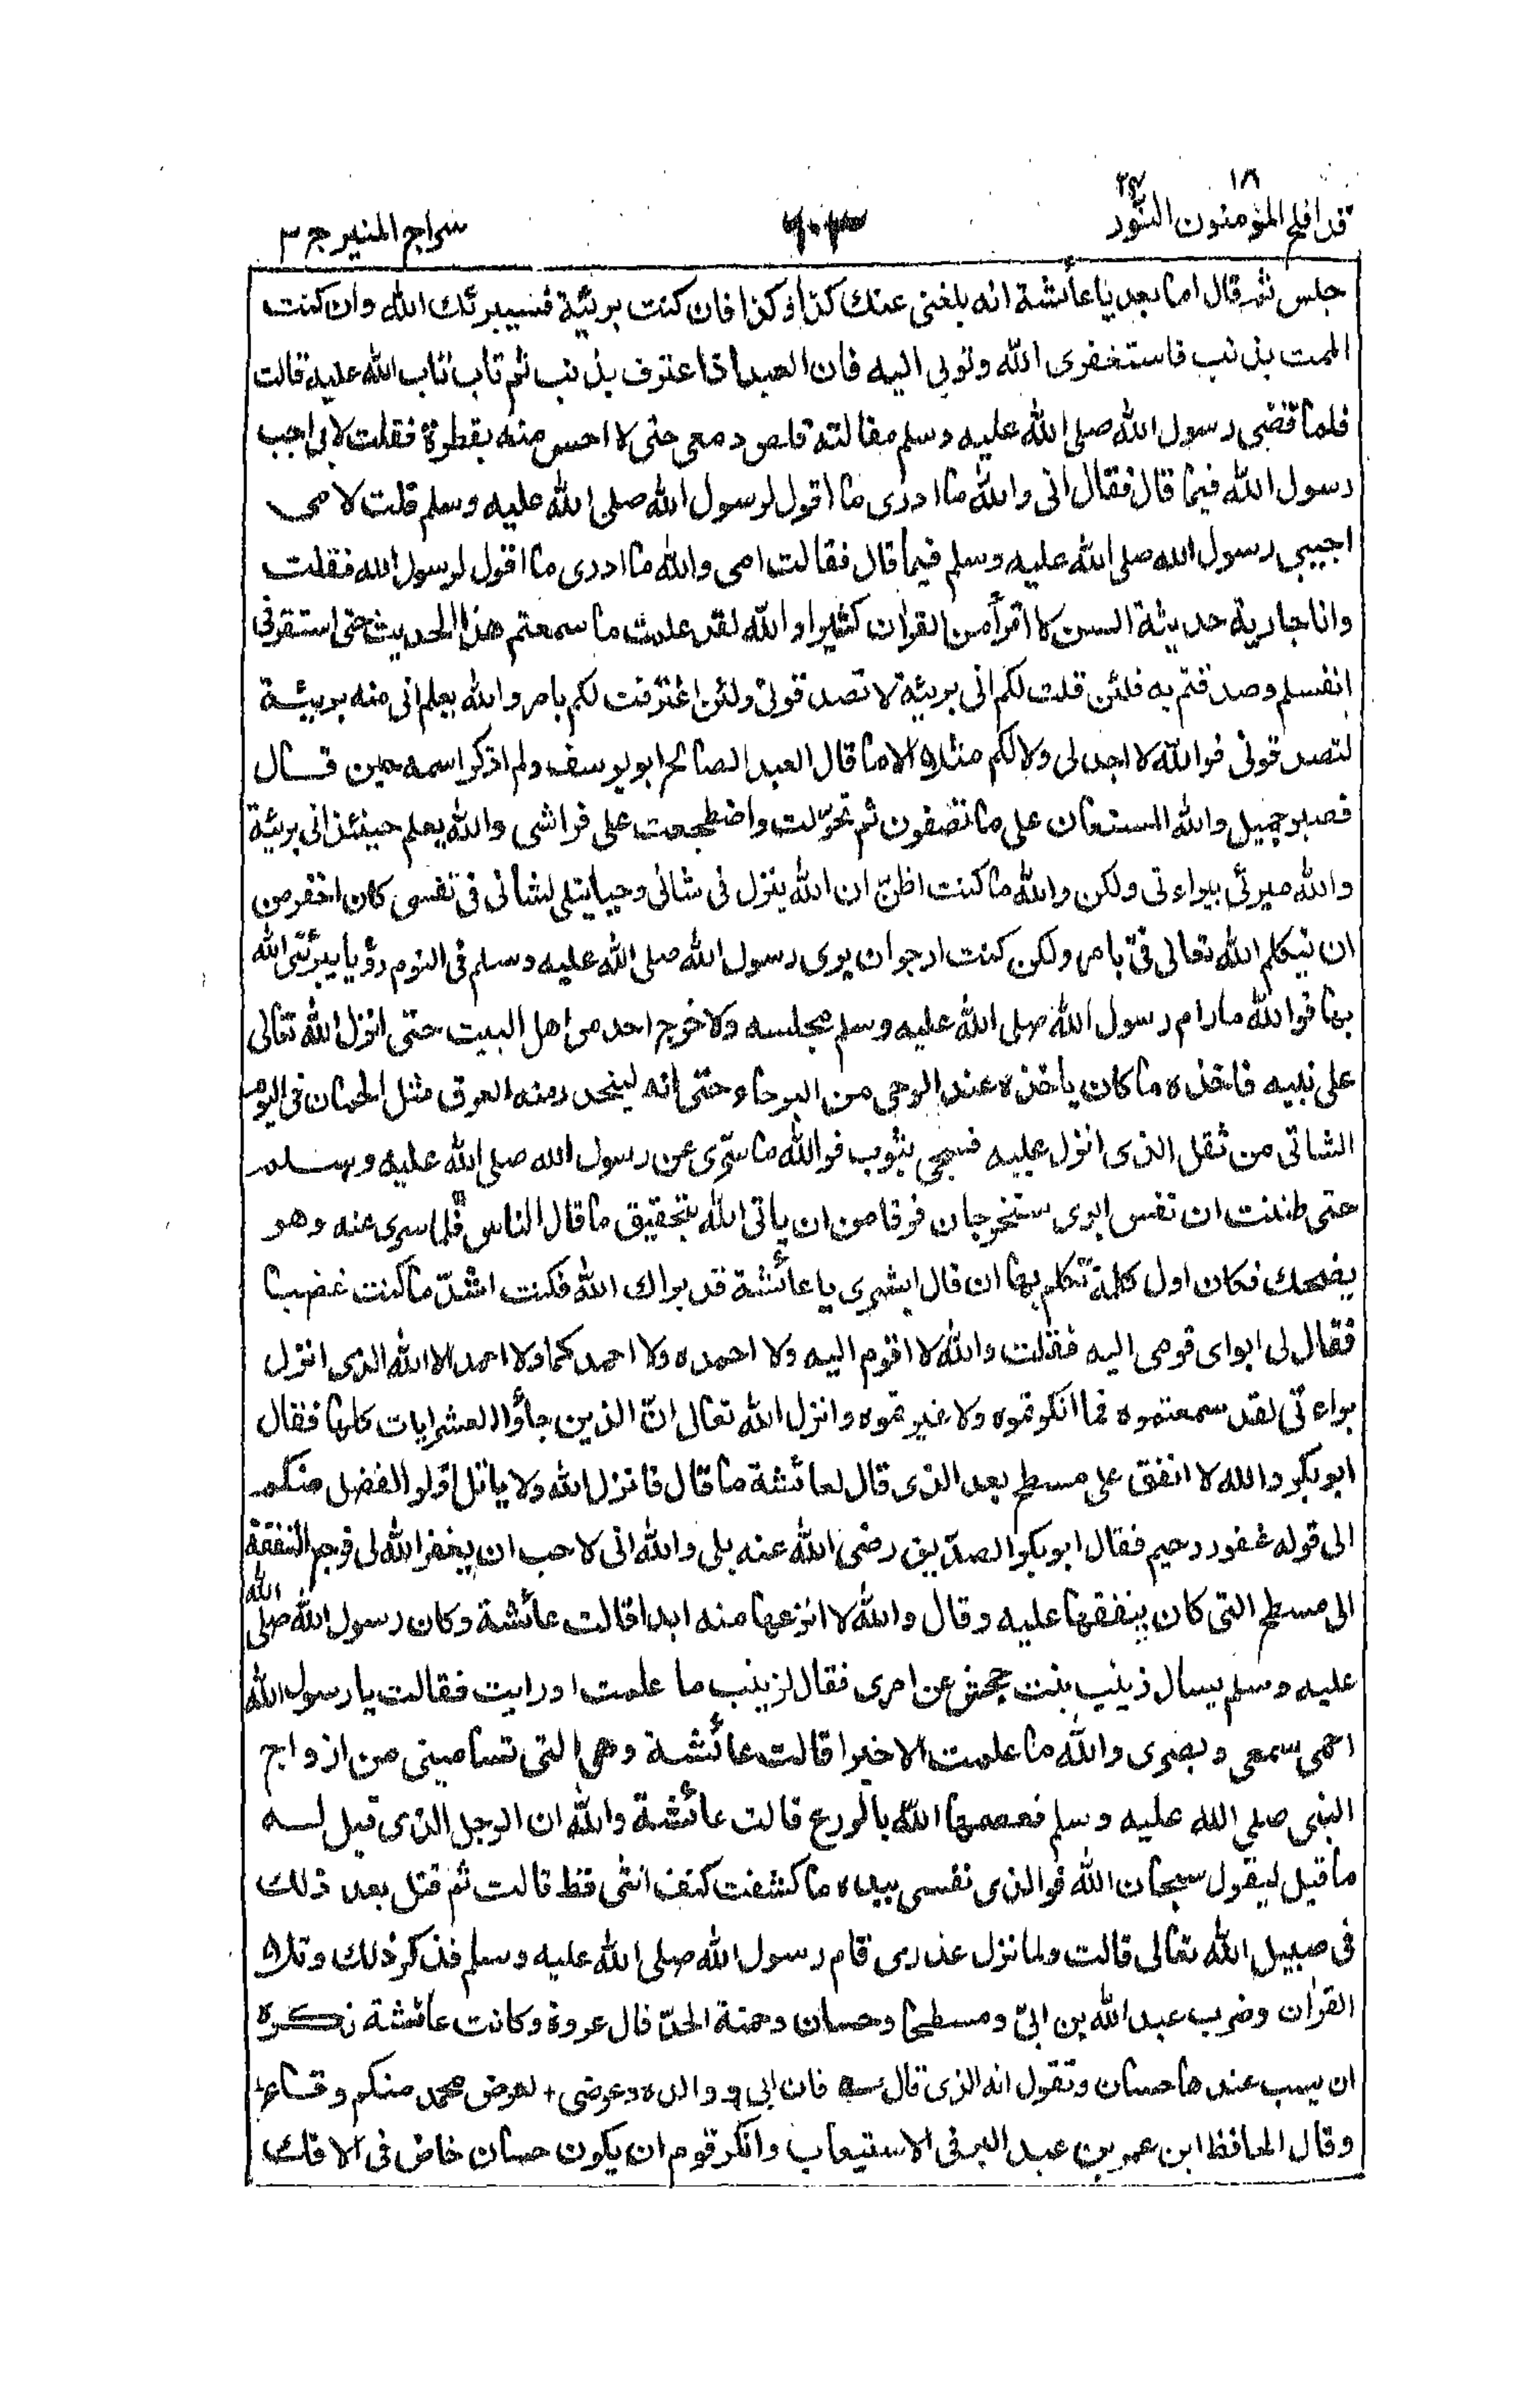 قد افلح المؤمنون ١٨ النور ٢٤
٦٠٣
سراج المنير جز ٣
جلس ثم قال اما بعد يا عائشة انه بلغنى عنك كذا وكذا فان كنت بريئة فسيبرئك الله وان كنت
الممت بذنب فاستغفرى الله وتوبى اليه فان العبد اذا اعترف بذنب ثم تاب تاب الله عليه قالت
فلما قضى رسول الله صلى الله عليه وسلم مقالته قلص دمعى حتى لا احس منه بقطرة فقلت لابى اجب
رسول الله فيما قال فقال انى والله ما ادرى ما اقول لرسول الله صلى الله عليه وسلم قلت لامى
اجيبى رسول الله صلى الله عليه وسلم فيما قال فقالت امى والله ما ادرى ما اقول لرسول الله فقلت
وانا جارية حديثة السن لا اقرأ من القران كثيرا والله لقد علمت ما سمعتم هذا الحديث حتى استقر فى
انفسكم وصدقتم به فلئن قلت لكم انى بريئة لا تصدقونى ولئن اعترفت لكم بامر والله يعلم انى منه بريئة
لتصدقونى فوالله لا اجد لى ولا لكم مثلا الا ما قال العبد الصالح ابو يوسف ولم اذكر اسمه حين قال
فصبر جميل والله المستعان على ما تصفون ثم تحوّلت واضطجعت على فراشى والله يعلم حينئذ انى بريئة
والله مبرئى ببراءتى ولكن والله ما كنت اظنّ ان الله ينزل فى شانى وحيا يتلى لشانى فى نفسى كان احقر من
ان يتكلم الله تعالى فىّ بامر ولكن كنت ارجو ان يرى رسول الله صلى الله عليه وسلم فى النوم رؤيا يبرّئنى الله
بها فوالله ما رام رسول الله صلى الله عليه وسلم مجلسه ولا خرج احد من اهل البيت حتى انزل الله تعالى
على نبيه فاخذه ما كان ياخذه عند الوحى من البرحاء وحتى انه لينحدر منه العرق مثل الجمان فى اليوم
الشاتى من ثقل الذى انزل عليه فسجى بثوب فوالله ما سرّى عن رسول الله صلى الله عليه وسلم
حتى ظننت ان نفس ابوى ستخرجان فرقا من ان ياتى الله بتحقيق ما قال الناس فلما سرى عنه وهو
يضحك فكان اول كلمة تكلم بها ان قال ابشرى يا عائشة قد براك الله فكنت اشدّ ما كنت غضبا
فقال لى ابواى قومى اليه فقلت والله لا اقوم اليه ولا احمده ولا احمد كما ولا احمد الا الله الذى انزل
براءتى لقد سمعتموه فما انكرتموه ولا غيرتموه وانزل الله تعالى انّ الذين جاؤا العشر ايات كلها فقال
ابو بكر والله لا انفق على مسطح بعد الذى قال لعائشة ما قال فانزل الله ولا ياتل اولو الفضل منكم
الى قوله غفور رحيم فقال ابو بكر الصدّيق رضى الله عنه بلى والله انى لاحب ان يغفر الله لى فرجع النفقة
الى مسطح التى كان ينفقها عليه وقال والله لا انزعها منه ابدا قالت عائشة وكان رسول الله صلى الله
عليه وسلم يسال زينب بنت جحش عن امرى فقال لزينب ما علمت او رايت فقالت يا رسول الله
احمى سمعى وبصرى والله ما علمت الا خيرا قالت عائشة وهى التى تسامينى من ازواج
النبى صلى الله عليه وسلم فعصمها الله بالورع قالت عائشة والله ان الرجل الذى قيل له
ما قيل ليقول سبحان الله فوالذى نفسى بيده ما كشفت كنف انثى قط قالت ثم قتل بعد ذلك
فى سبيل الله تعالى قالت ولما نزل عذرى قام رسول الله صلى الله عليه وسلم فذكر ذلك وتلا
القران وضرب عبد الله بن ابىّ ومسطحا وحسان وحمنة الحدّ قال عروة وكانت عائشة تكره
ان يسب عندها حسان وتقول انه الذى قال فان ابى ووالده وعرضى + لعرض محمد منكم وقاء
وقال الحافظ ابن عمر بن عبد البر فى الاستيعاب وانكر قوم ان يكون حسان خاض فى الافك